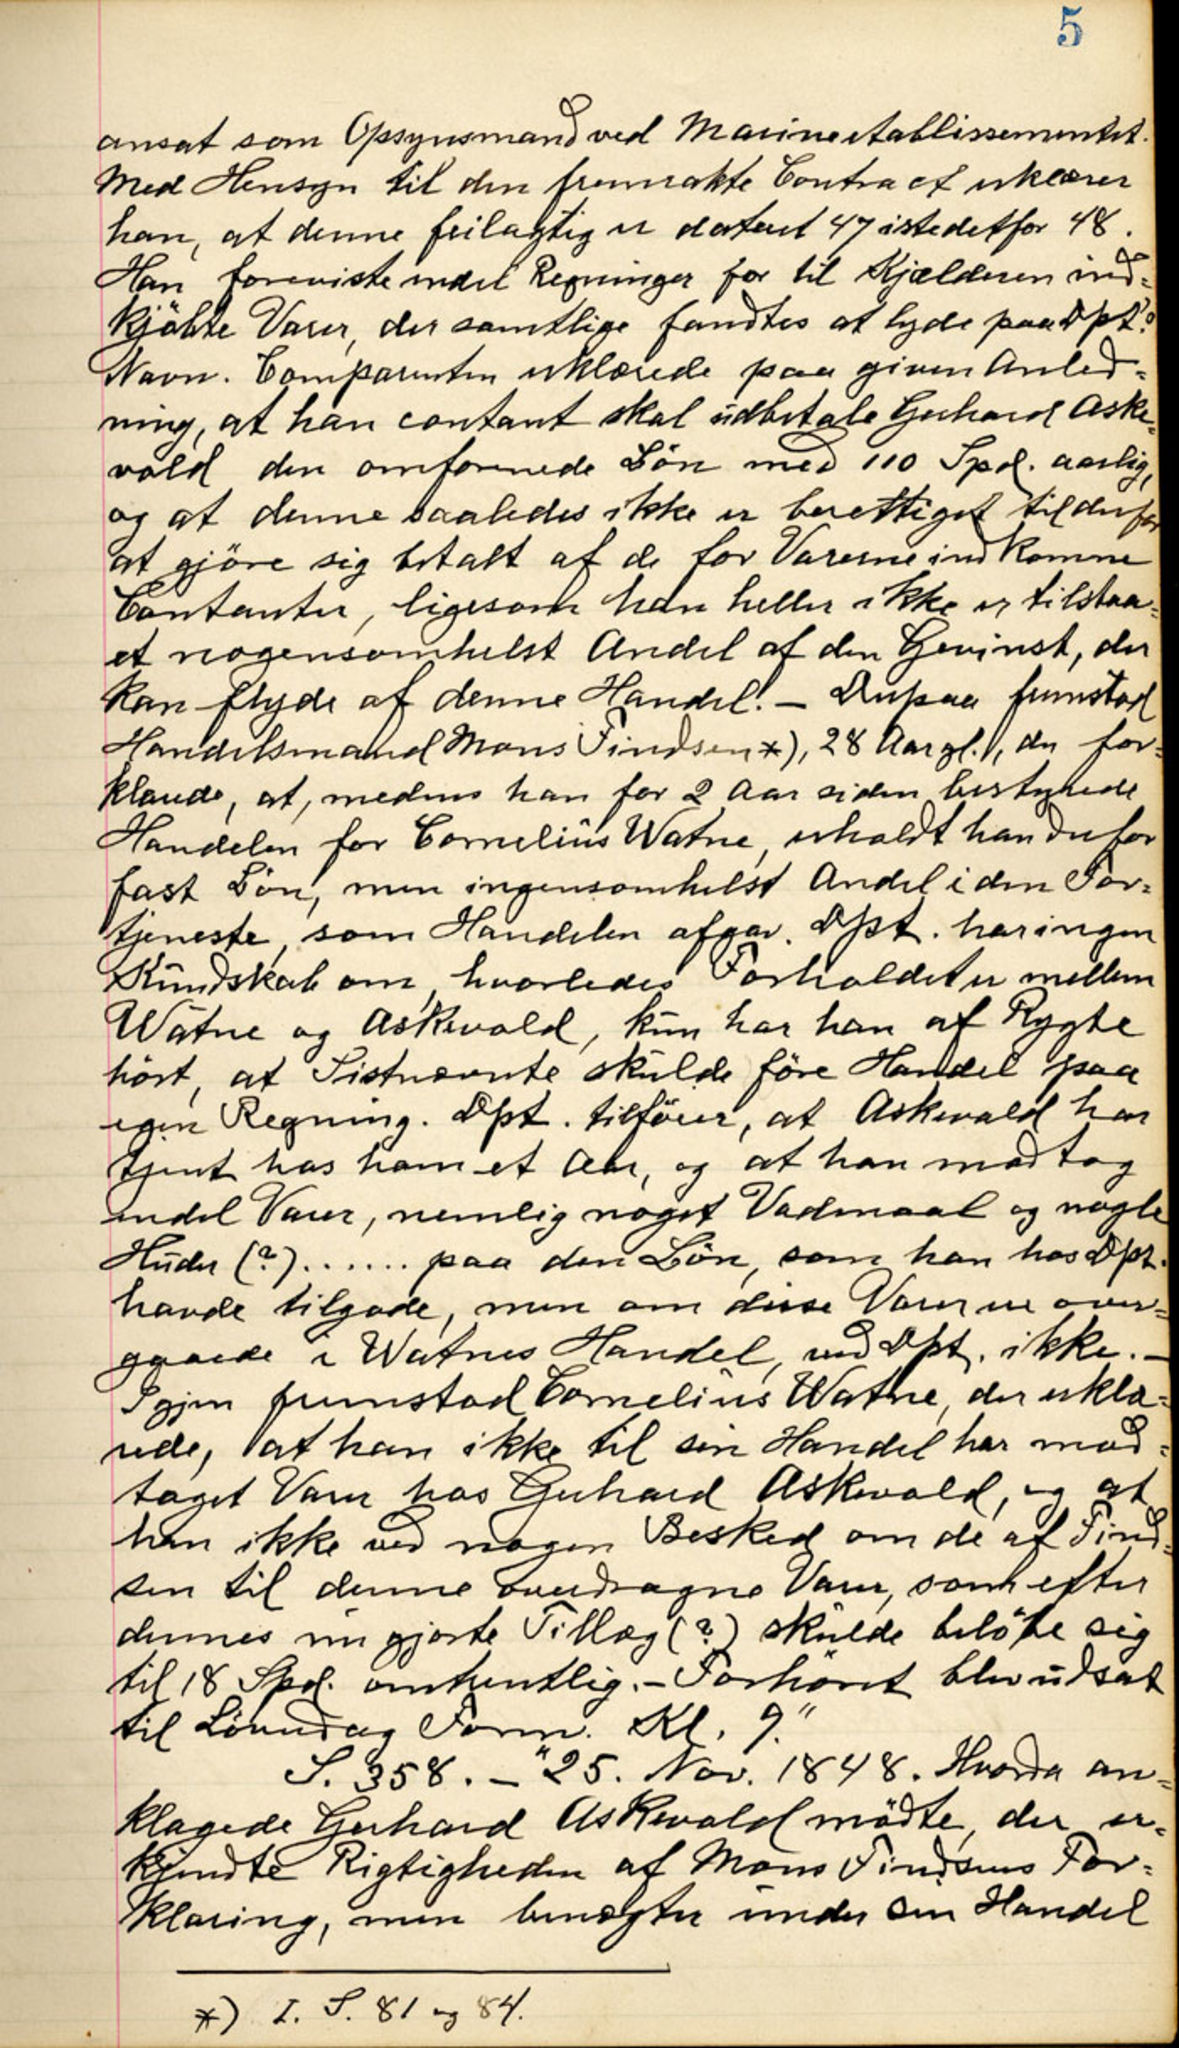 5
ansat som Opsynsmand ved Marineetablissementet.
Med Hensyn til den fremrakte Contract erklærer
han, at denne feilagtig er dateret 47 istedetfor 48.
Han foreviste endel Regninger for til Kjælderen ind-
kjöbte Varer, der samtlige fandtes at lyde paa Dpts
Navn. Comparenten erklærede paa given Anled-
ning, at han contant skal udbetale Gerhard Aske-
vold den omforenede Lön med 110 Spd. aarlig,
og at denne saaledes ikke er berettiget til derfor
at gjöre sig betalt af de for Varerne indkomne
Contanter, ligesom han heller ikke er tilstaa-
et nogensomhelst Andel af den Gevinst, der
kan flyde af denne Handel. – Derpaa fremstod
Handelsmand Mons Findsen *), 28 Aar gl., der for-
klarede, at, medens han for 2 Aar siden bestyrede
Handelen for Cornelius Watne, erholdt han derfor
fast Lön, men ingensomhelst Andel i den For-
tjeneste, som Handelen afgav. Dpt. har ingen
Kundskab om, hvorledes Forholdet er mellem
Watne og Askevold, kun har han af Rygte
hört, at Sistnævnte skulde före Handel paa
egen Regning. Dpt. tilföier, at Askevold har
tjent hos ham et Aar, og at han modtog
endel Varer, nemlig noget Vadmaal og nogle
Huder (?) ...... paa den Lön, som han hos Dpt.
havde tilgode, men om disse Varer er over-
gaaede i Watnes Handel, ved Dpt. ikke. –
Igjen fremstod Cornelius Watne, der erklæ-
rede, at han ikke til sin Handel har mod-
taget Varer hos Gerhard Askevold, og at
han ikke ved nogen Besked om de af Find-
sen til denne overdragne Varer, som efter
dennes nu gjorte Tillæg (?) skulde belöbe sig
til 18 Spd. omtrentlig. – Forhöret blev udsat
til Löverdag Form. Kl. 9."
S. 358. – "25. Nov. 1848. Hvorda an-
klagede Gerhard Askevold mödte, der er-
kjendte Rigtigheden af Mons Findsens For-
klaring, men benegter under sin Handel
*) I. S. 81 og 84.